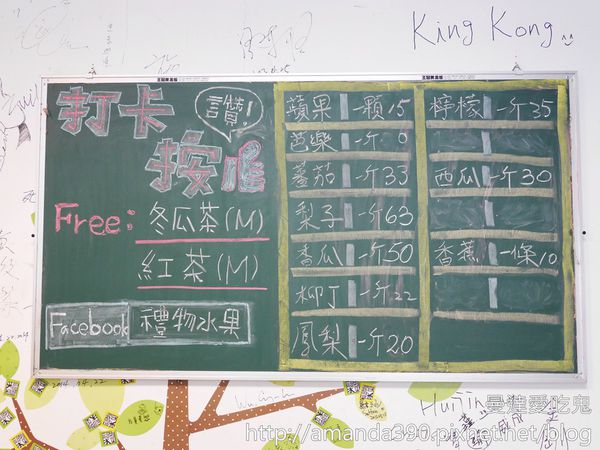 King Kong
打卡
讚!
按
Free: 冬瓜茶(M)
紅茶(M)
Facebook 禮物水果
蘋果 一顆15
芭樂 一斤 9
蕃茄 一斤33
梨子 一斤63
香瓜 一斤50
柳丁 一斤22
鳳梨 一斤20
檸檬 一斤35
西瓜 一斤30
香蕉 一條10
2014.04.22
Huijin
曼達愛吃鬼
http://amanda390.pixnet.net/blog